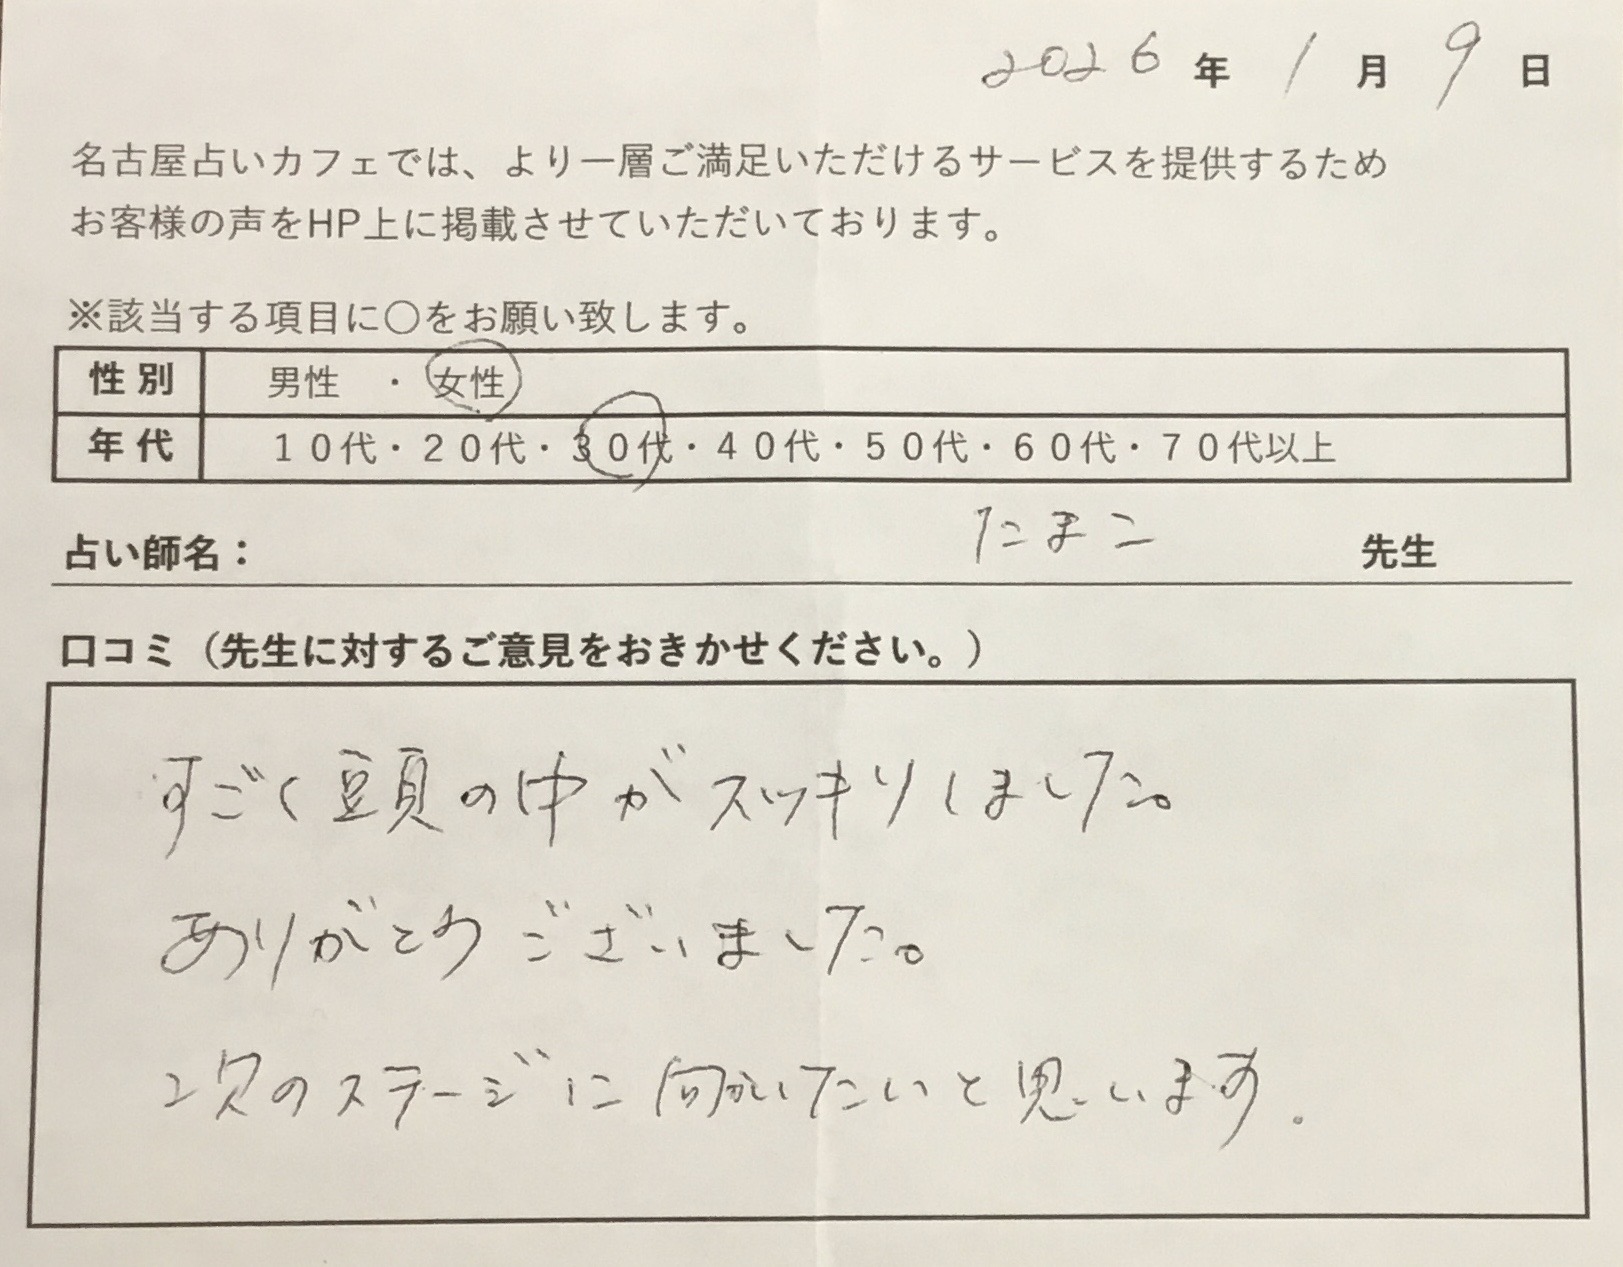 2026年1月9日
名古屋占いカフェでは、より一層ご満足いただけるサービスを提供するため
お客様の声をHP上に掲載させていただいております。
※該当する項目に〇をお願い致します。
性別 男性 ・ 女性
年代 10代・20代・30代・40代・50代・60代・70代以上
占い師名： たまこ 先生
口コミ（先生に対するご意見をおきかせください。）
すごく頭の中がスッキリしました。
ありがとうございました。
次のステージに向かいたいと思います.